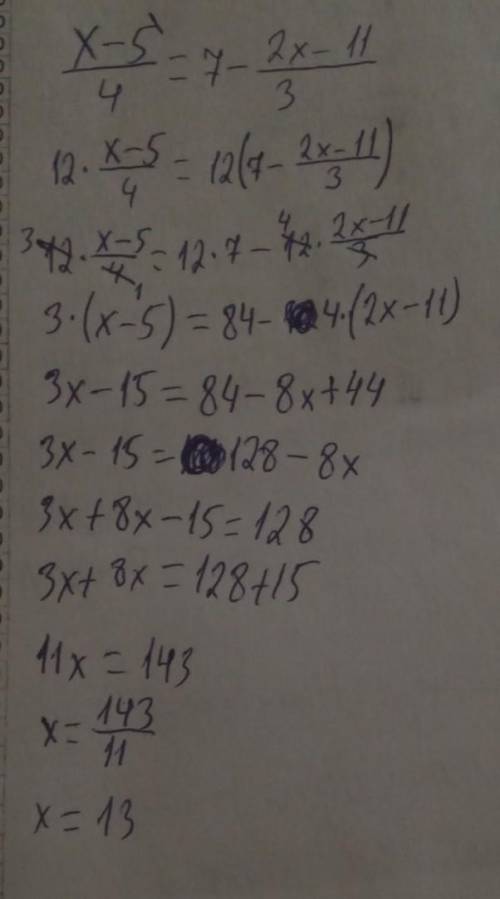 (x-5)/4 = 7 - (2x-11)/3
12 · (x-5)/4 = 12(7 - (2x-11)/3)
3 12 · (x-5)/4 1 = 12 · 7 - 4 12 · (2x-11)/3
3 · (x-5) = 84 - 4 · (2x-11)
3x - 15 = 84 - 8x + 44
3x - 15 = 128 - 8x
3x + 8x - 15 = 128
3x + 8x = 128 + 15
11x = 143
x = 143/11
x = 13